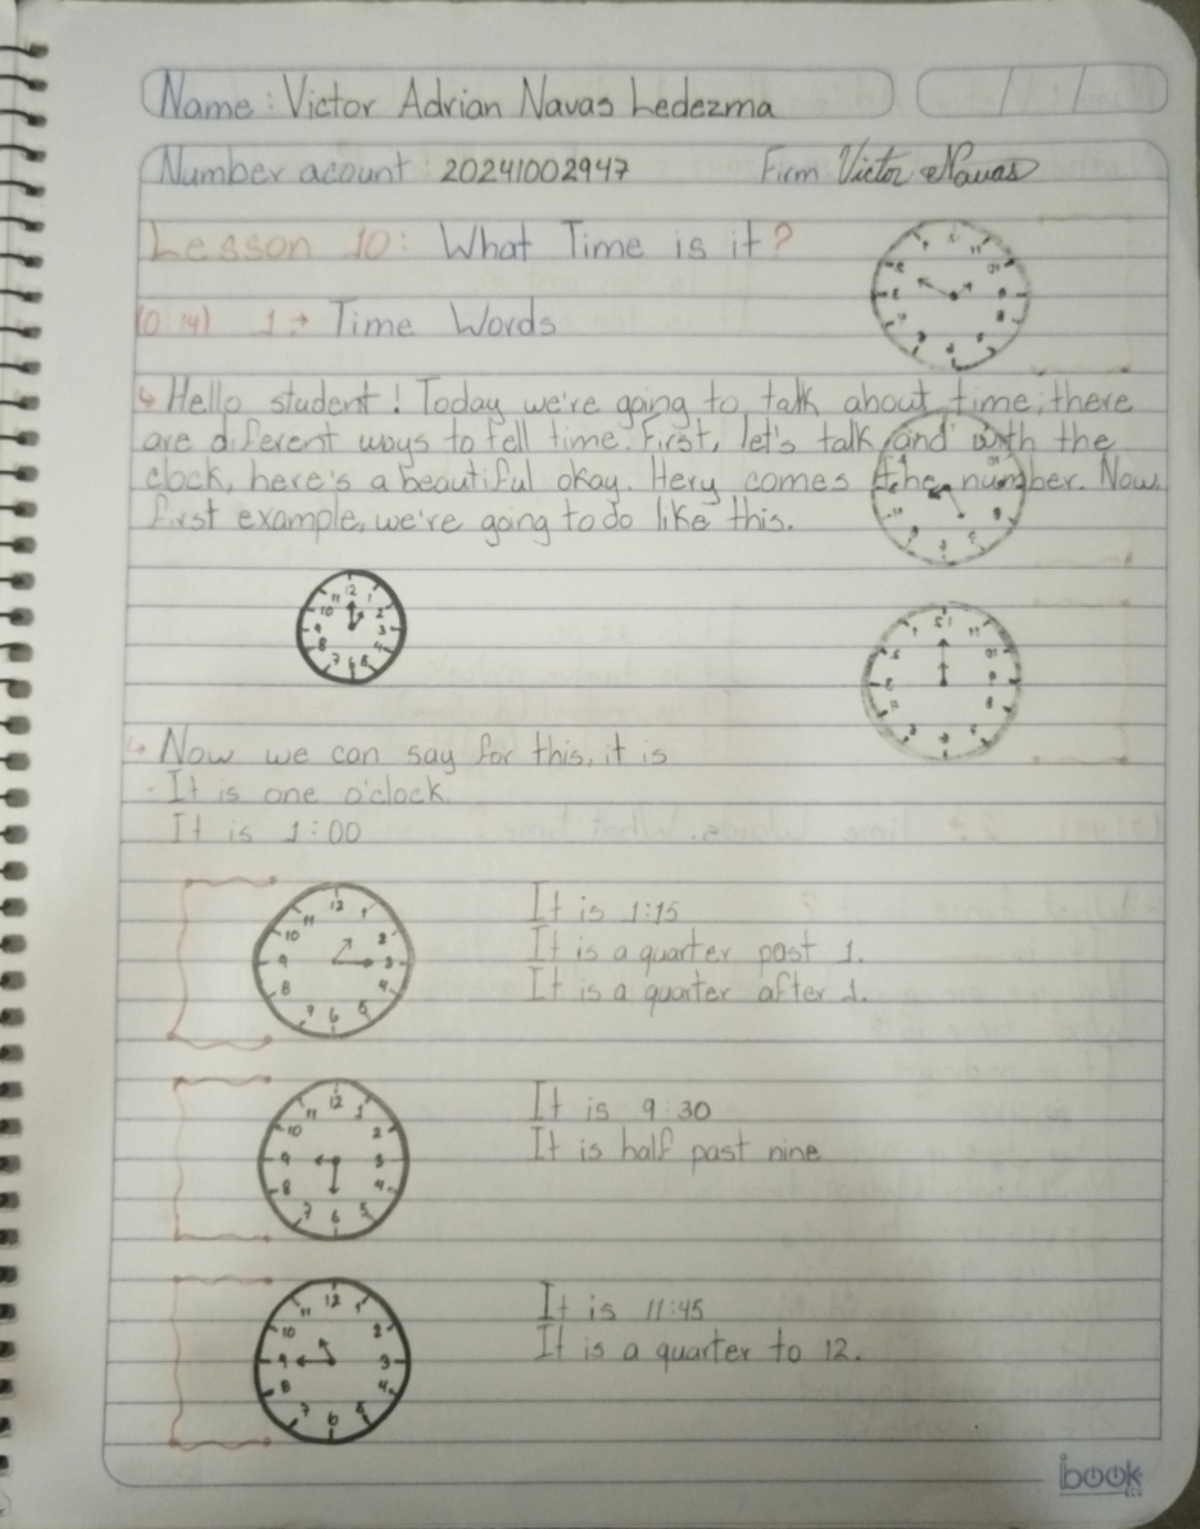 Name: Victor Adrian Navas Ledezma
Number acount: 20241002947 Firm Victor Navas
Lesson 10: What Time is it?
(0:14) 1.→ Time Words
↳ Hello student! Today we're going to talk about time, there
are diferent ways to tell time. First, let's talk and with the
clock, here's a beautiful okay. Hery comes the number. Now,
first example, we're going to do like this.
12 1 2 3 4 5 6 7 8 9 10 11
↳ Now we can say for this, it is
· It is one o'clock.
It is 1:00
12 1 2 3 4 5 6 7 8 9 10 11
It is 1:15
It is a quarter past 1.
It is a quarter after 1.
12 1 2 3 4 5 6 7 8 9 10 11
It is 9:30
It is half past nine
12 1 2 3 4 5 6 7 8 9 10 11
It is 11:45
It is a quarter to 12.
ibook